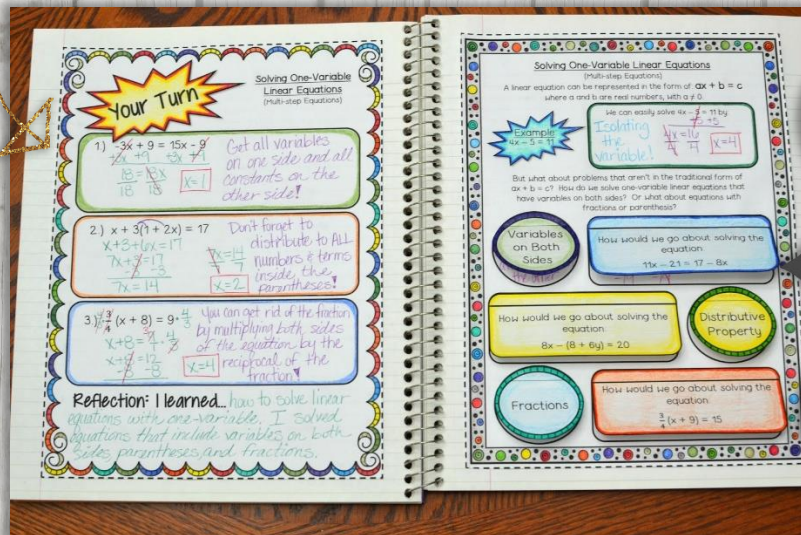 Your Turn
Solving One-Variable
Linear Equations
(Multi-step Equations)
1.) -3x + 9 = 15x - 9
+3x +9 +3x +9
18 = 18x
18 18
x=1
Get all variables
on one side and all
constants on the
other side!
2.) x + 3(1 + 2x) = 17
x+3+6x=17
7x+3=17
-3 -3
7x = 14
7x=14
7 7
x=2
Don't forget to
distribute to ALL
numbers & terms
inside the
parentheses!
3.) 4/3 · 3/4 (x + 8) = 9 · 4/3
x+8= 9/1 · 4/3
x+8=12
-8 -8
x=4
You can get rid of the fraction
by multiplying both sides
of the equation by the
reciprocal of the
fraction!
Reflection: I learned... how to solve linear
equations with one-variable. I solved
equations that include variables on both
sides, parentheses, and fractions.
Solving One-Variable Linear Equations
(Multi-step Equations)
A linear equation can be represented in the form of ax + b = c
where a and b are real numbers, with a ≠ 0.
Example
4x - 5 = 11
We can easily solve 4x - 5 = 11 by
+5 +5
Isolating
the
variable!
4x=16
4 4
x=4
But what about problems that aren't in the traditional form of
ax + b = c? How do we solve one-variable linear equations that
have variables on both sides? Or what about equations with
fractions or parenthesis?
Variables
on Both
Sides
How would we go about solving the
equation
11x - 21 = 17 - 8x
How would we go about solving the
equation.
8x - (8 + 6y) = 20
Distributive
Property
Fractions
How would we go about solving the
equation
3/4 (x + 9) = 15